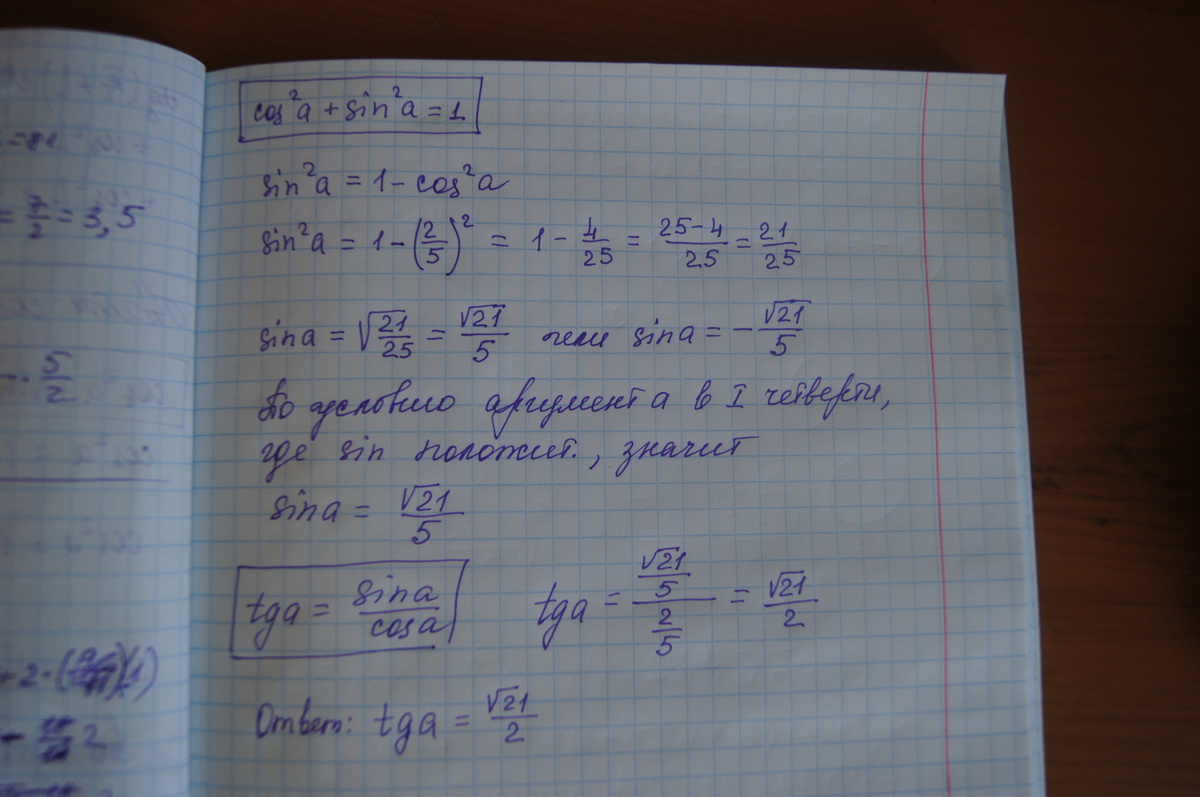 cos²a + sin²a = 1
sin²a = 1 - cos²a
sin²a = 1 - (2/5)² = 1 - 4/25 = (25-4)/25 = 21/25
sina = √(21/25) = √21/5 или sina = -√21/5
По условию аргумент a в I четверти,
где sin положит., значит
sina = √21/5
tga = sina/cosa
tga = (√21/5)/(2/5) = √21/2
Ответ: tga = √21/2
= 7/2 = 3,5
5/2